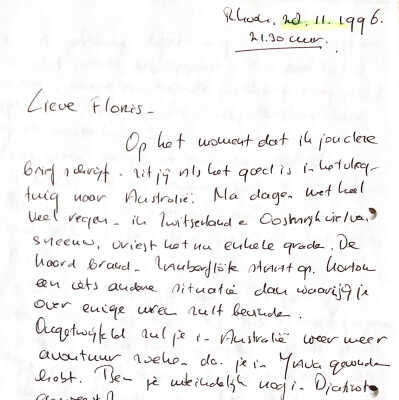 Rhoon, 28.11.1996.
21.30 uur.
Lieve Floris -
Op het moment dat ik jou deze
brief schrijf - zit jij als het goed is in het vlieg-
tuig naar Australië. Na dagen met heel
veel regen - in Zwitserland e Oostenrijk viel
sneeuw, vriest het nu enkele grade. De
haard brand - staat op. Kortom
een iets andere situatie dan waarin jij je
over enige uren zult bevinden.
Ongetwijfeld zul je in Australië weer meer
avontuur da je in gevonden
hebt. Ben je uiteindelijk nog in
geweest?